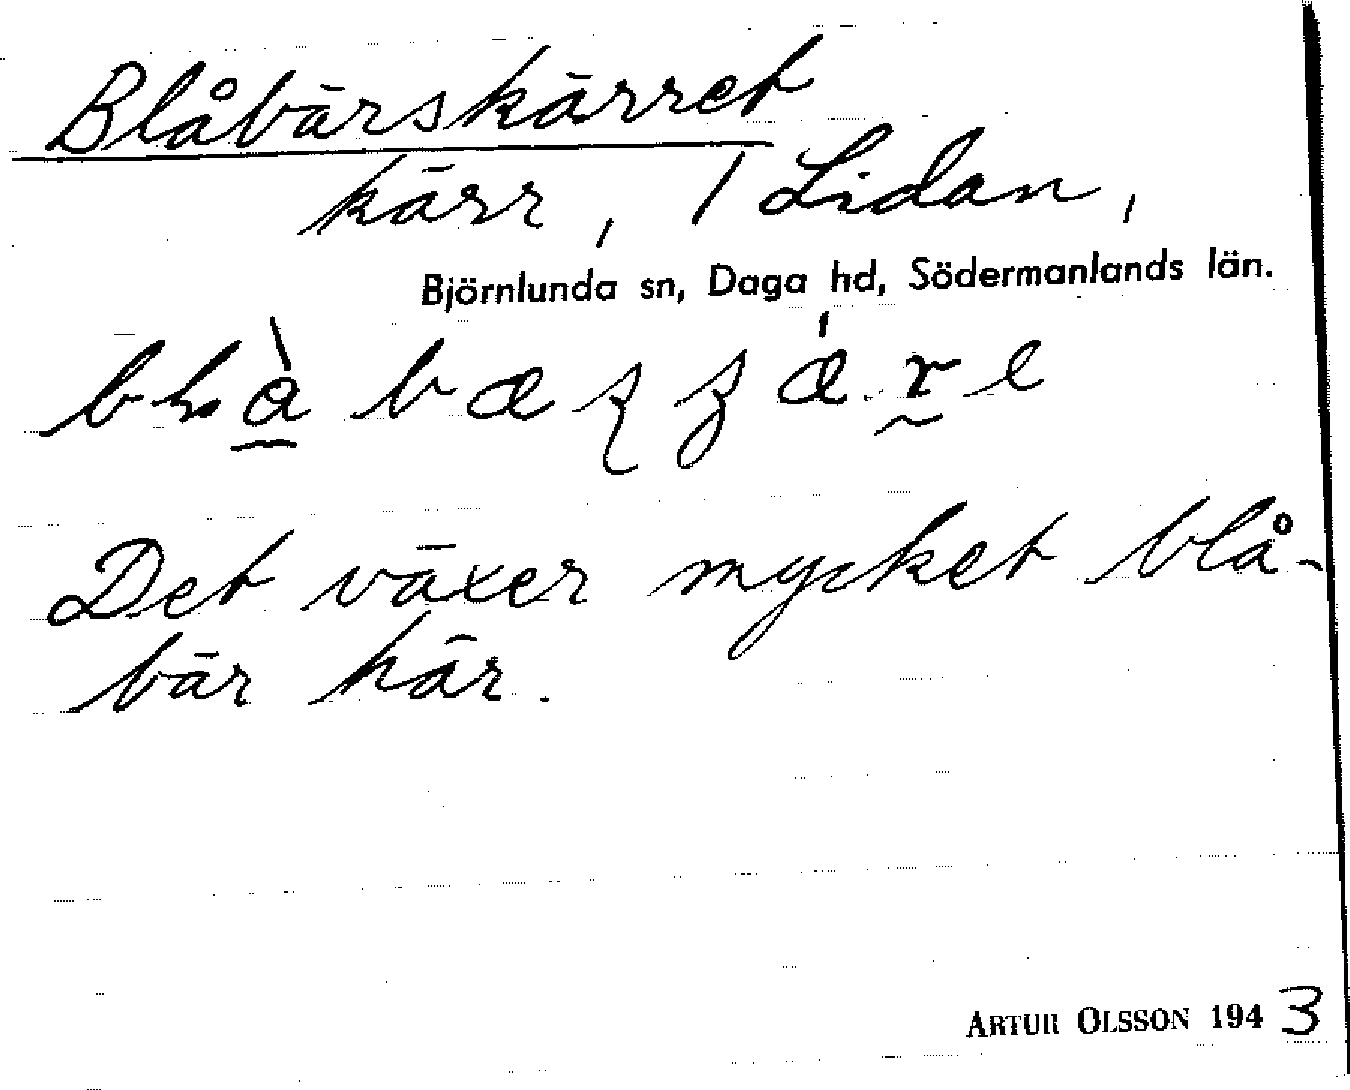 Blåbärskärret
kärr, / Lidan,
Björnlunda sn, Daga hd, Södermanlands län.
Det växer mycket blå-
bär här.
ARTUR OLSSON 1943